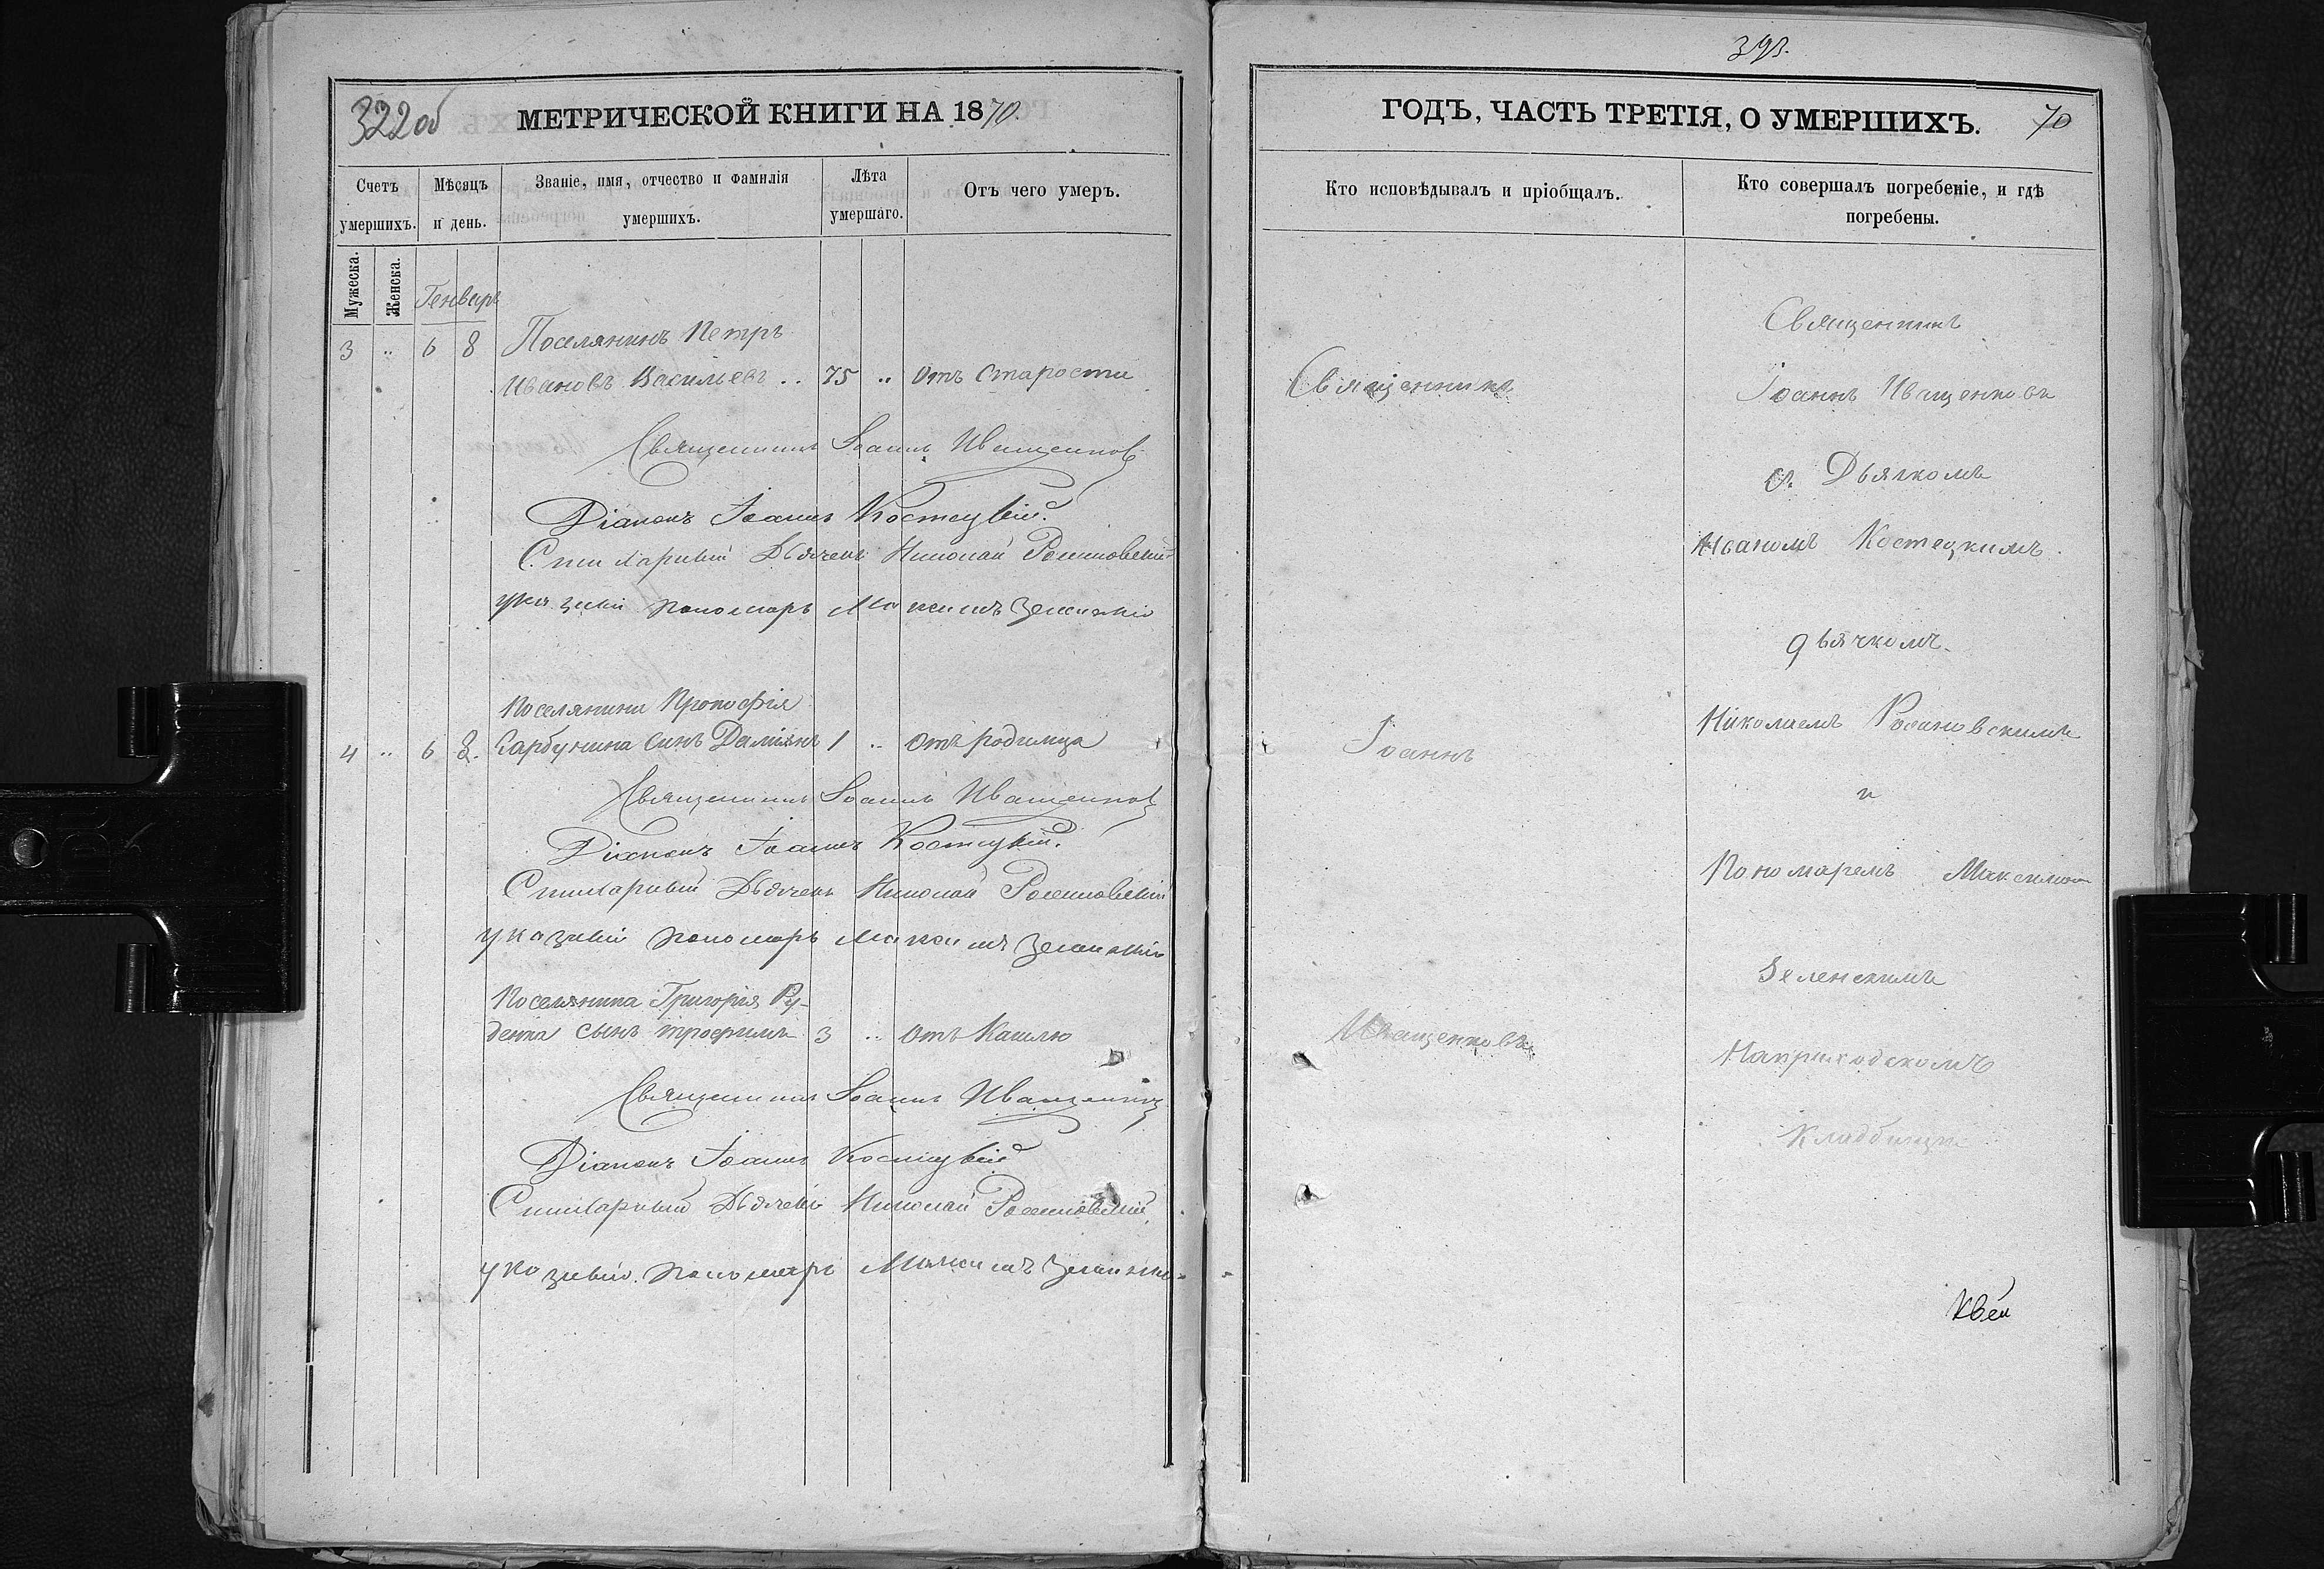 322 об
МЕТРИЧЕСКОЙ КНИГИ НА 1870.
Счетъ умершихъ.
Мѣсяцъ и день.
Званіе, имя, отчество и фамилія умершихъ.
Лѣта умершаго.
Отъ чего умеръ.
Мужеска.
Женска.
Генварь
3 „ 6 8 Поселянинъ Петръ
Ивановъ Васильевъ .. 75 „ Отъ старости
Священникъ Іоаннъ Иващенковъ
Діаконъ Іоаннъ Костецкій.
Дьячекъ Николай
указный пономарь Максимъ Зеленскій
Поселянина Прокофія
4 „ 6 8. Гарбузина синъ Даміянъ 1 „ Отъ родимца
Священникъ Іоаннъ Иващенковъ
Діаконъ Іоаннъ Костецкій.
Дьячекъ Николай
указный пономарь Максимъ Зеленскій
Поселянина Григорія Ру-
денка сынъ трофимъ 3 „ Отъ Кашлю
Священникъ Іоаннъ Иващенковъ
Діаконъ Іоаннъ Костецкій
Дьячекъ Николай
указный пономарь Максимъ Зеленскій
ГОДЪ, ЧАСТЬ ТРЕТІЯ, О УМЕРШИХЪ.
70
Кто исповѣдывалъ и пріобщалъ.
Кто совершалъ погребеніе, и гдѣ
погребены.
Священникъ
Іоаннъ
Иващенковъ
Священникъ
Іоаннъ Иващенковъ
съ Дьячкомъ
Иваномъ Костецкимъ.
дьячкомъ.
Николаемъ
и
Пономаремъ Максимомъ
Зеленскимъ
На приходскомъ
Кладбищи